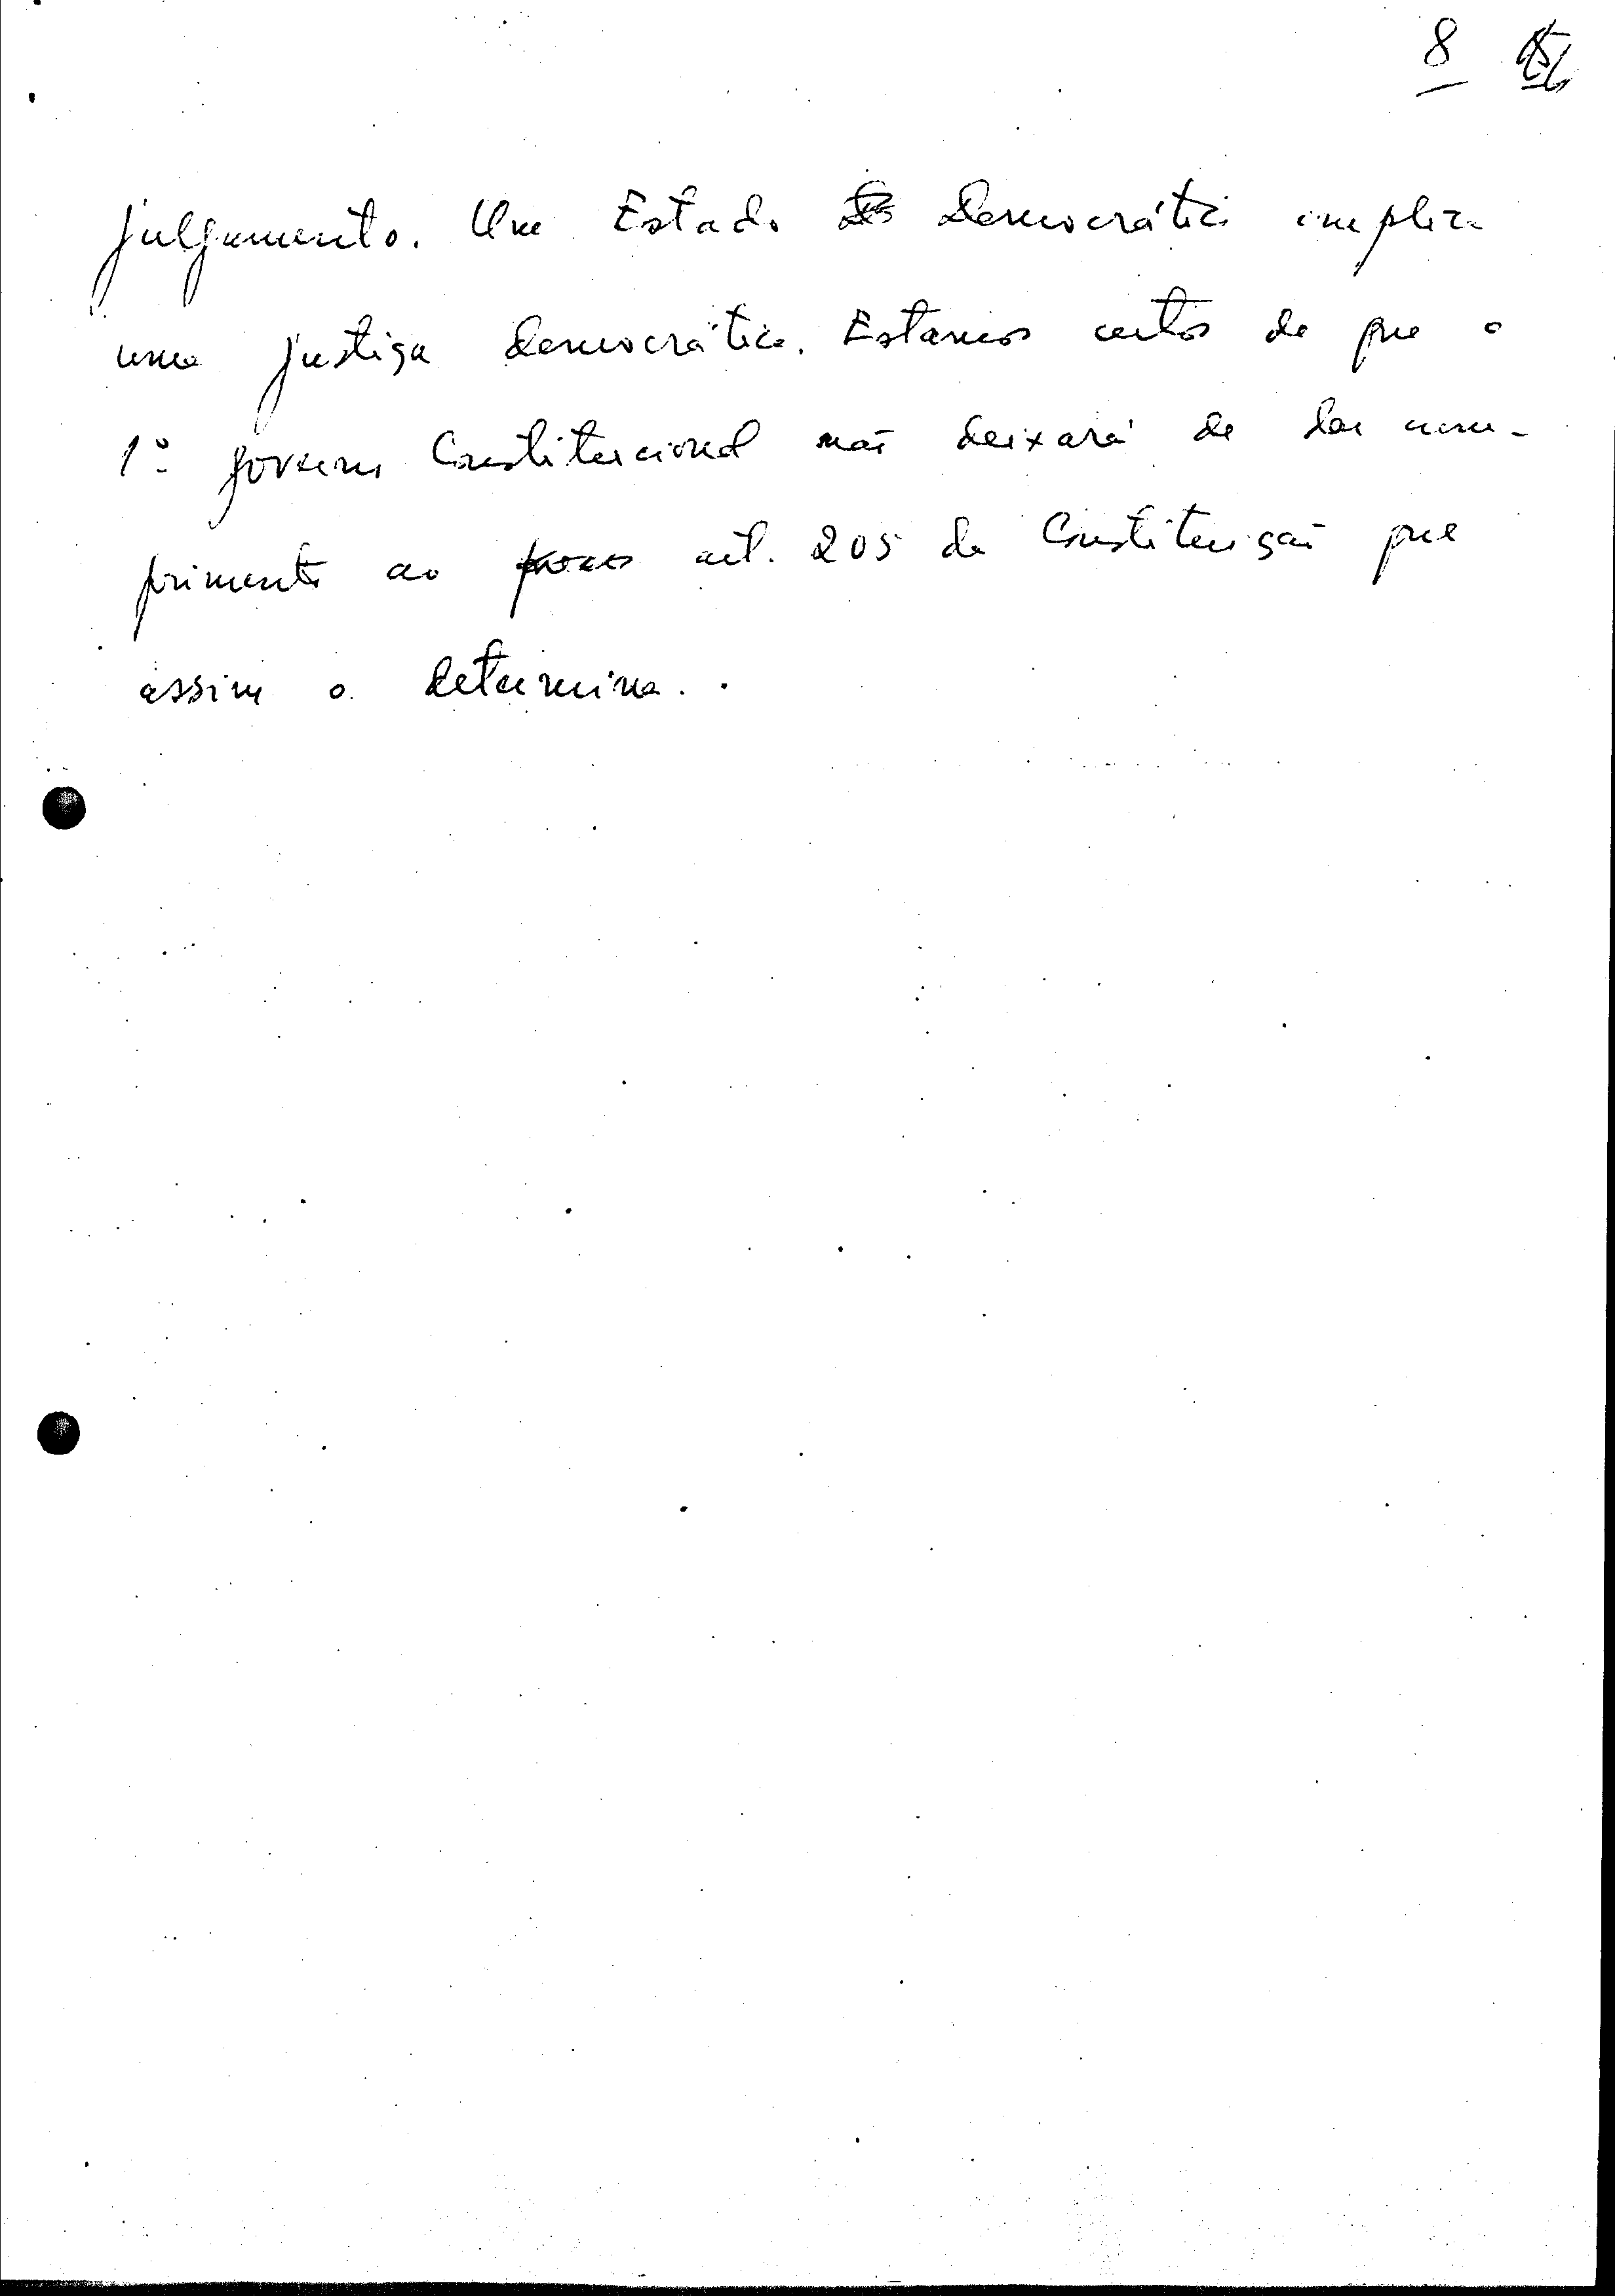 8
julgamento. Um Estado Democrático implica
uma justiça democrática. Estamos certos de que o
1º governo Constitucional não deixará de dar cum-
primento ao art. 205 da Constituição que
assim o determina.